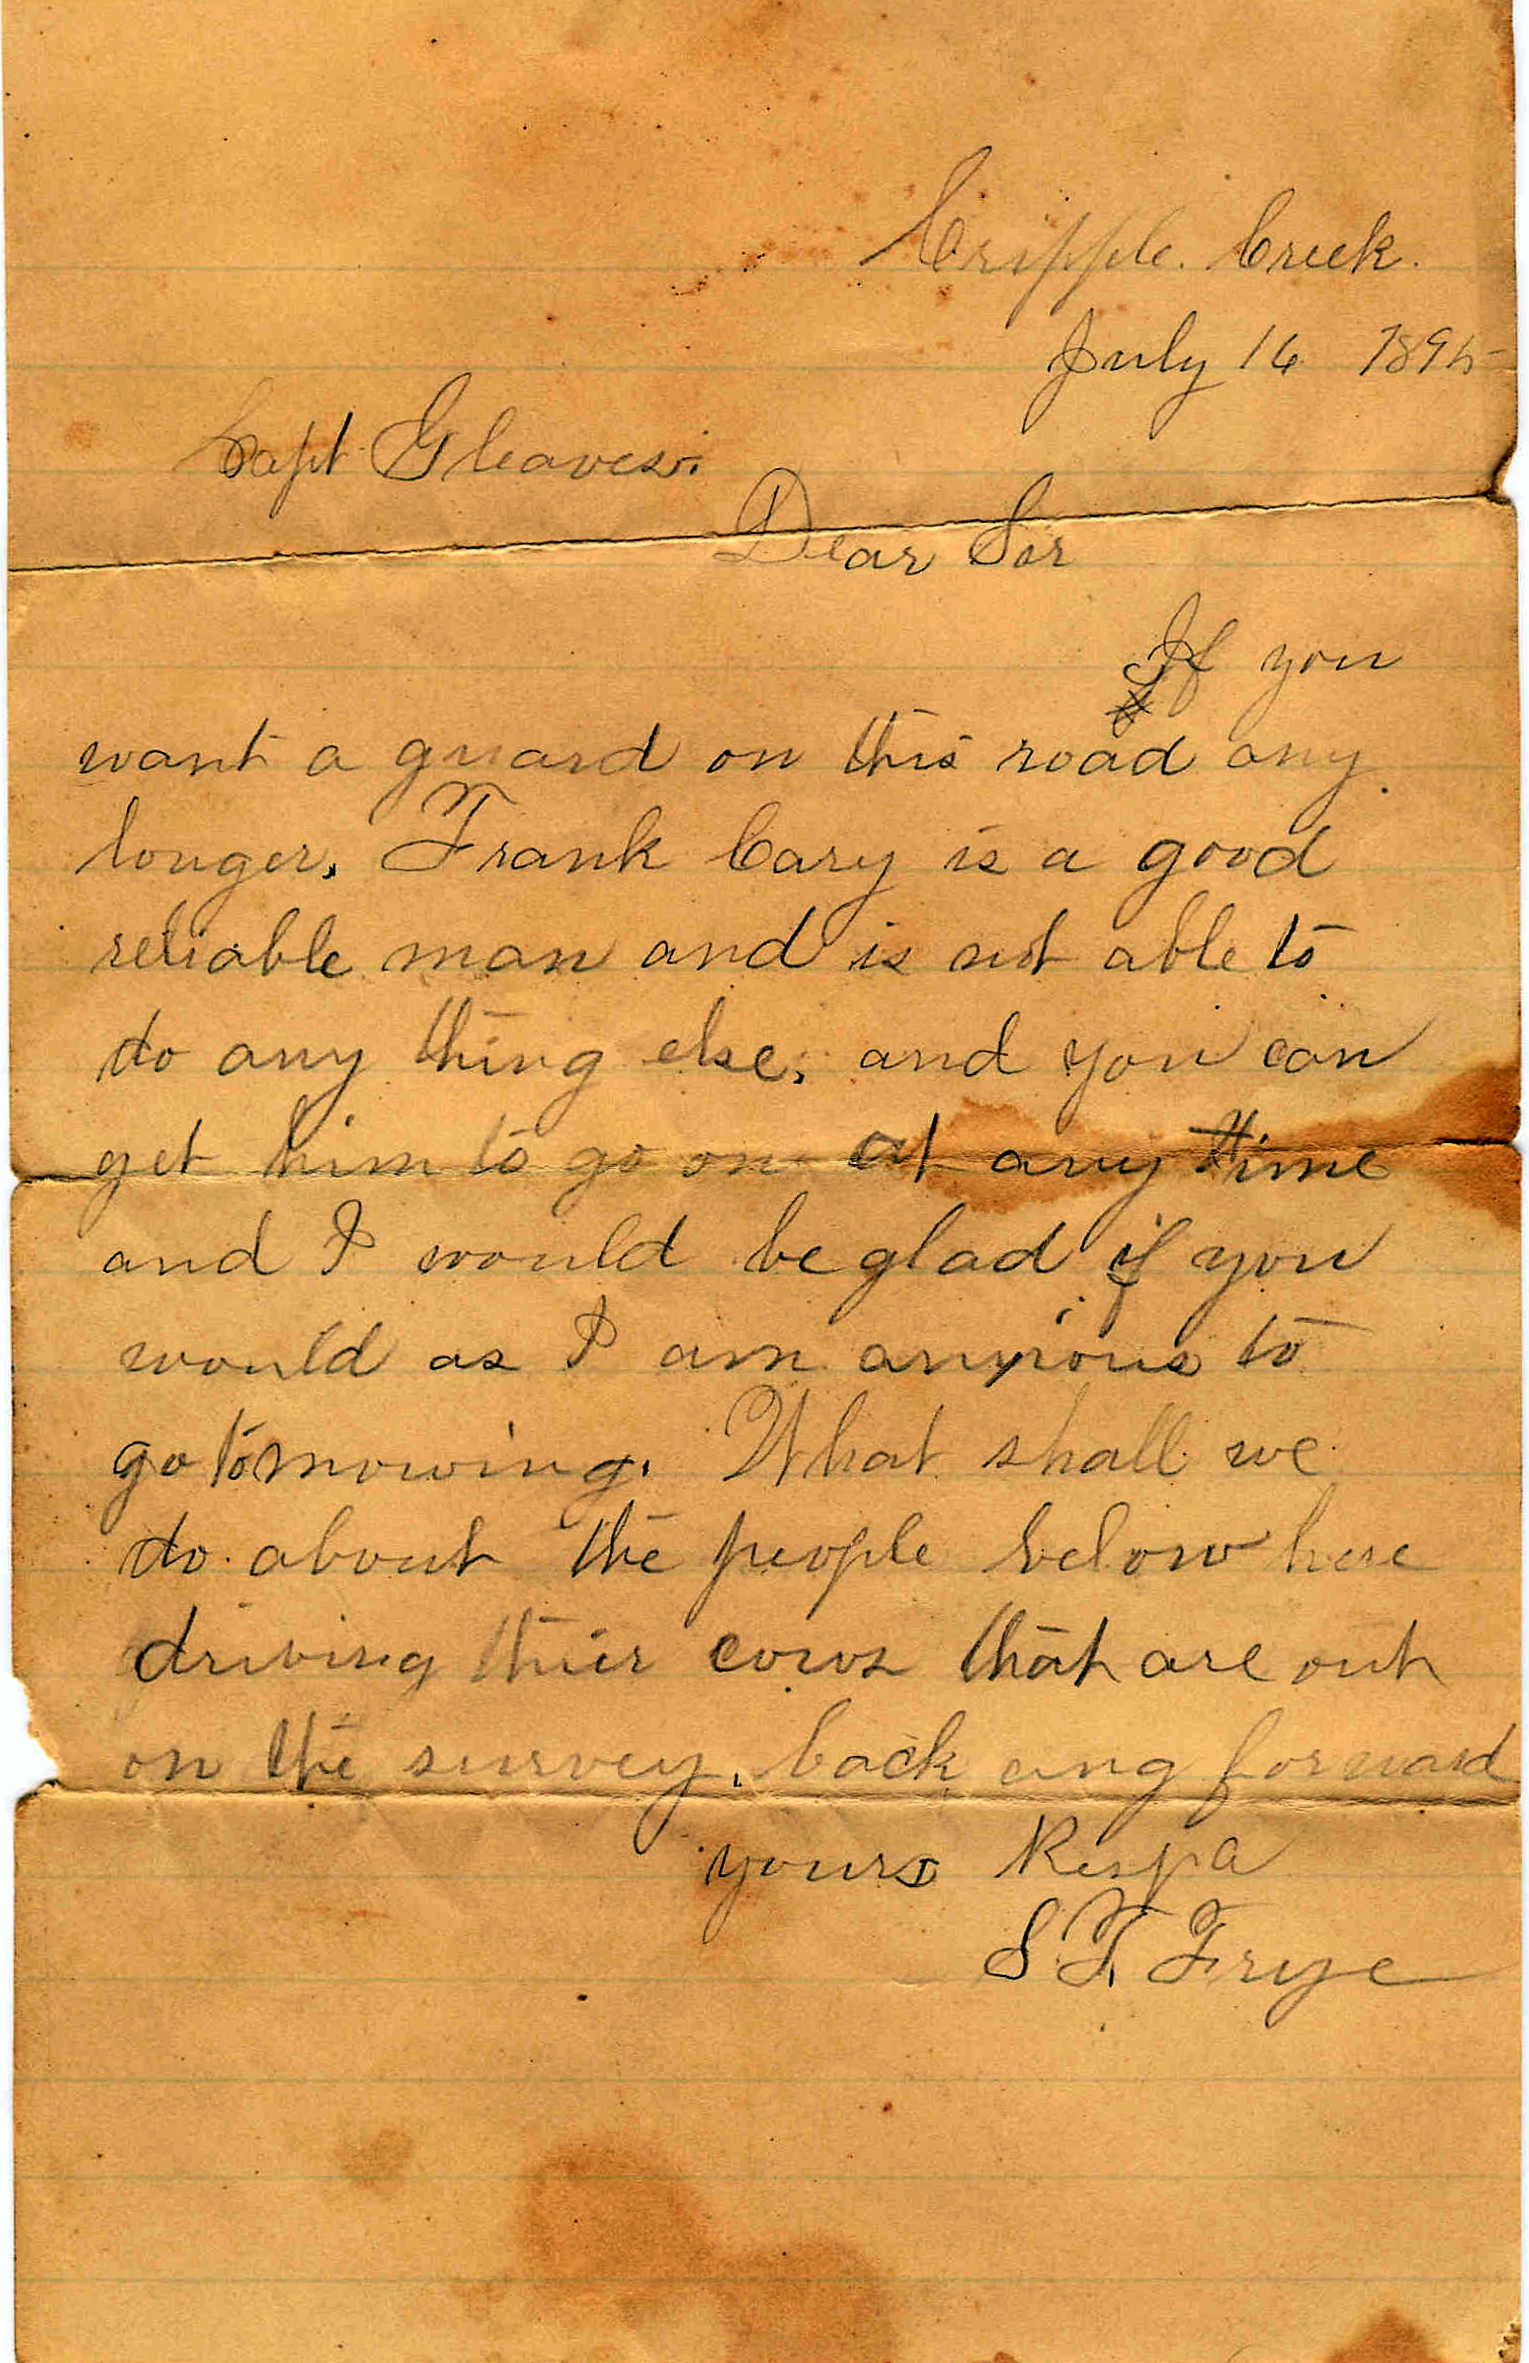 Cripple. Creek.
July 16 1895
Capt Gleaves.
Dear Sir
If you
want a guard on this road any
longer, Frank Cary is a good
reliable man and is not able to
do any thing else, and you can
get him to go on at any time
and I would be glad if you
would as I am anxious to
go to mowing. What shall we
do about the people below here
driving thier cows that are out
on the survey, back ang forward
yours Respa
S. F. Frye